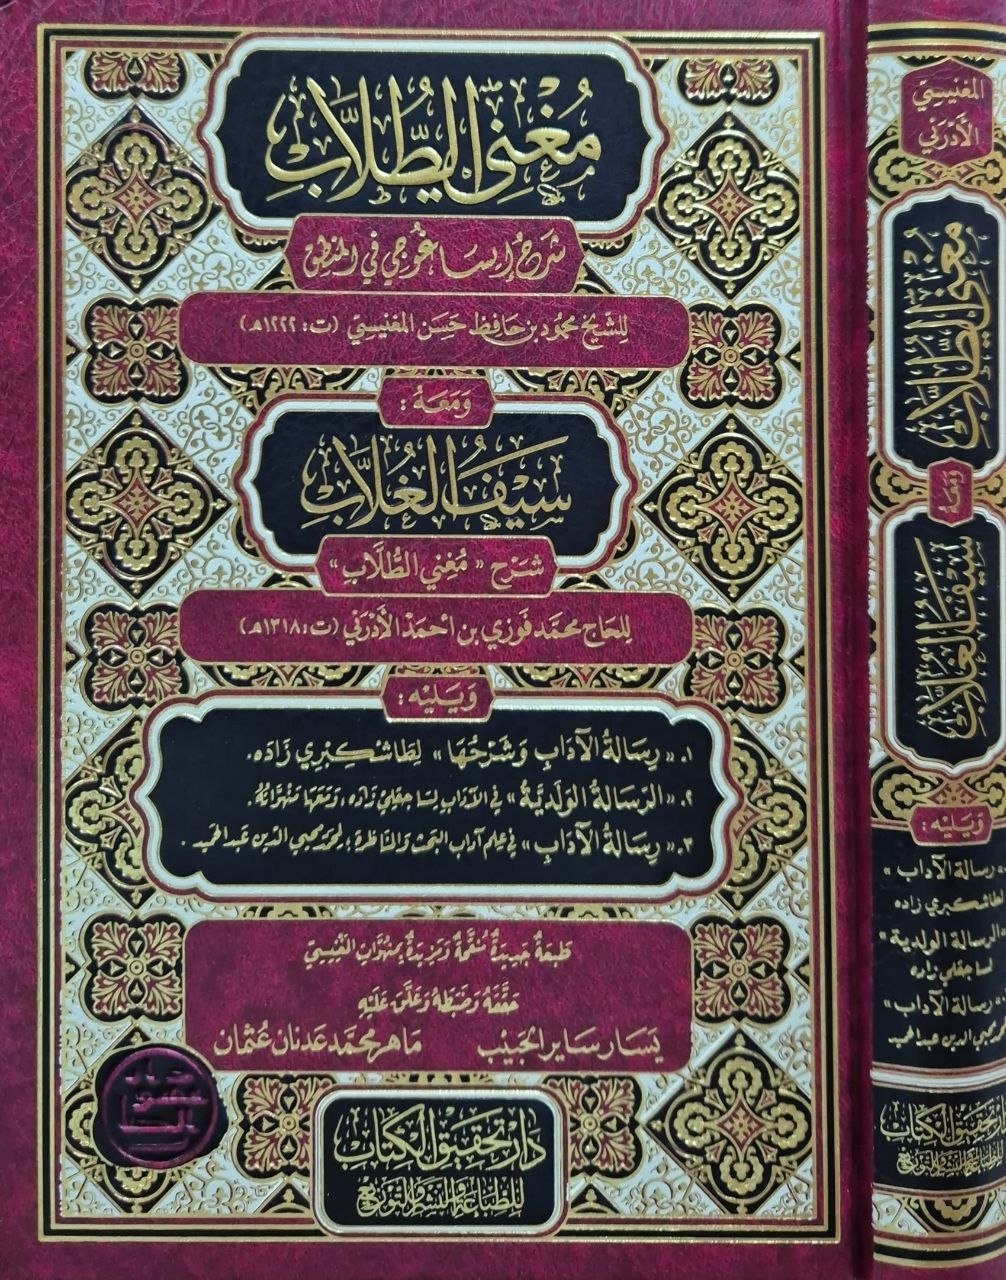 مُغْنِي الطُّلَّابِ
شَرْحُ إِيسَاغُوجِي فِي المَنْطِقِ
لِلشَّيْخِ مَحْمُود بن حَافِظ حَسَن المَغْنِيسِيّ (ت: ١٢٢٢هـ)
وَمَعَهُ :
سَيْفُ الغُلَّابِ
شَرْح « مُغْنِي الطُّلَّابِ »
لِلحَاج مُحَمَّد فَوْزِي بن أَحْمَدَ الأَدْرَنِي (ت: ١٣١٨هـ)
وَيَلِيْهِ :
١. « رِسَالَةُ الآدَابِ وَشَرْحُهَا » لِطَاشْكِبْرِي زَادَه.
٢. « الرِّسَالَةُ الوَلَدِيَّةُ » فِي الآدَابِ لِسَاجقلي زَاده ، وَمَعَهَا مَنْهُوَاتُهُ.
٣. « رِسَالَةُ الآدَابِ » فِي عِلْمِ آدَابِ البَحْثِ وَالمُنَاظَرَةِ ؛ لِمُحَمَّد مُحيي الدِّين عَبد الحَمِيد .
طَبْعَةٌ جَدِيدَةٌ مُنَقَّحَةٌ وَمَزِيدَةٌ بِمَنْهُوَاتِ المَغْنِيسِيّ
حَقَّقَهُ وَضَبَطَهُ وَعَلَّقَ عَلَيْهِ
يَسَار سَايِر الحَبِيْب
مَاهِر مُحَمَّد عَدْنَان عُثْمَان
دَارُ تَحْقِيق الكِتَاب
لِلطِّبَاعَةِ وَالنَّشْرِ وَالتَّوْزِيْعِ
المَغْنِيسِيّ
الأَدْرَنِي
مُغْنِي الطُّلَّابِ
وَمَعَهُ
سَيْفُ الغُلَّابِ
وَيَلِيْهِ :
« رسالة الآداب »
طاشكبري زاده
« الرسالة الولدية »
لساجقلي زاده
« رسالة الآداب »
محيي الدين عبد الحميد
دار تحقيق الكتاب
للطباعة والنشر والتوزيع